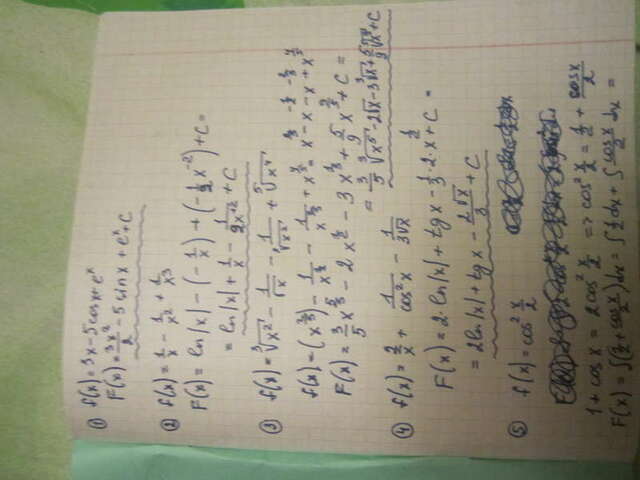 ① f(x) = 3x - 5cosx + eˣ
F(x) = 3x²/2 - 5 sin x + eˣ + C
② f(x) = 1/x - 1/x² + 1/x³
F(x) = ln|x| - (-1/x) + (-1/2 x⁻²) + C =
= ln|x| + 1/x - 1/2x⁺² + C
③ f(x) = ∛x² - 1/√x - 1/∛x² + ⁵√x⁴
f(x) = (x^(2/3)) - 1/x^(1/2) - 1/x^(2/3) + x^(4/5) = x^(2/3) - x^(-1/2) - x^(-2/3) + x^(4/5)
F(x) = 3/5 x^(5/3) - 2 x^(1/2) - 3 x^(1/3) + 5/9 x^(9/5) + C =
= 3/5 ∛x⁵ - 2√x - 3∛x + 5/9 ⁵√x⁹ + C
④ f(x) = 2/x + 1/cos²x - 1/3√x
F(x) = 2·ln|x| + tg x - 1/3 · 2 · x^(1/2) + C =
= 2ln|x| + tg x - 2√x/3 + C
⑤ f(x) = cos² x/2
1 + cos x = 2cos² x/2 => cos² x/2 = 1/2 + cosx/2
F(x) = ∫(1/2 + cosx/2)dx = ∫1/2 dx + ∫ cosx/2 dx =